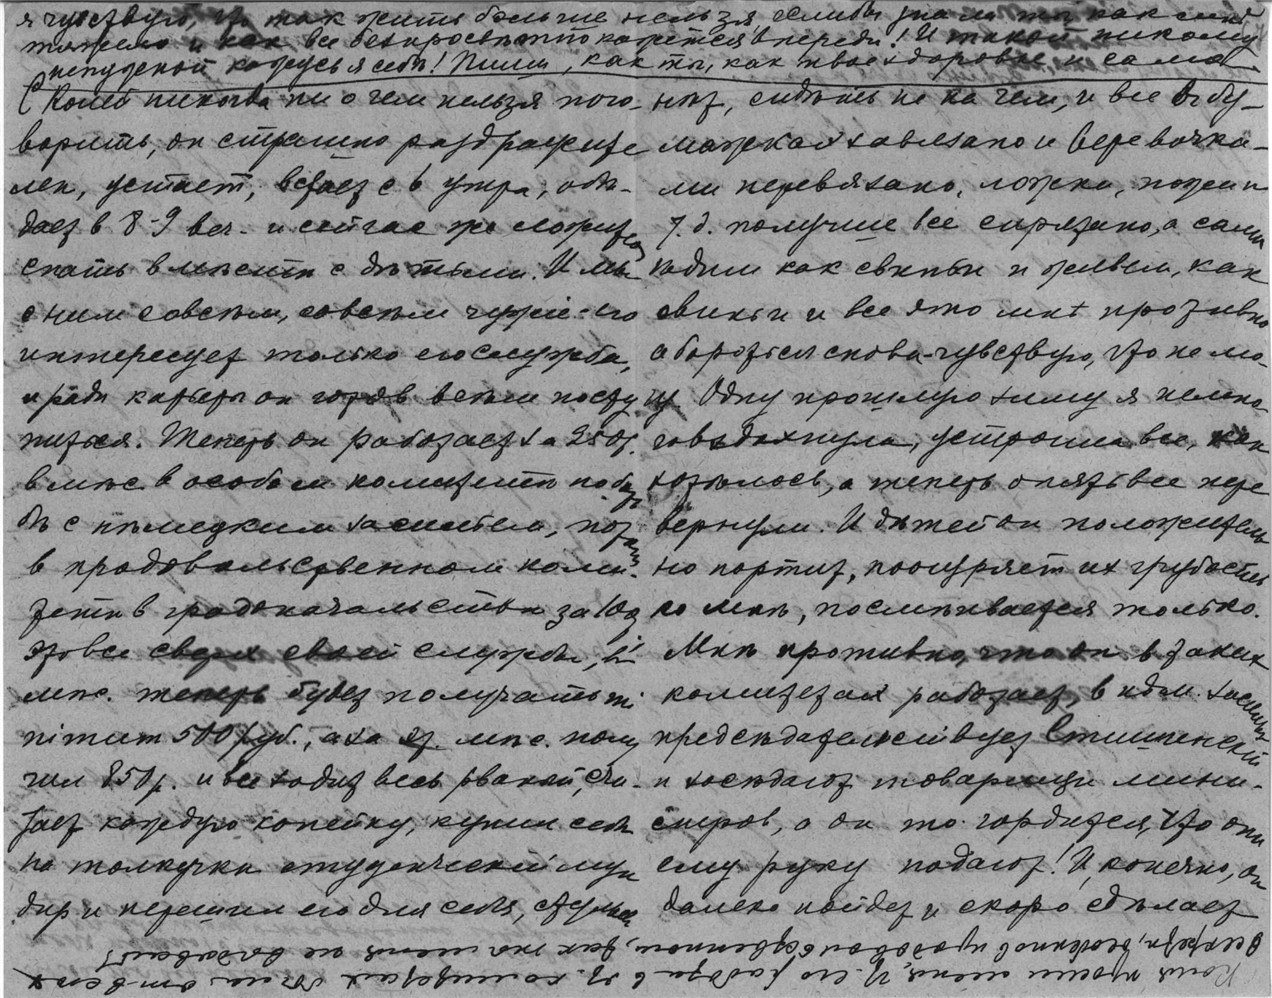 я чувствую, что так жить больше нельзя, если бы знала ты, как мнѣ
тяжело и как все безпросвѣтно кажется впереди! И такой никому
ненужной кажусь я себѣ! Пиши, как ты, как твое здоровье, и сама
С Колей никогда ни о чем нельзя пого-
ворить, он страшно раздражите
лен, устает, встает с 6 утра, обѣ-
дает в 8-9 веч. и сейчас же ложится
спать вмѣстѣ с дѣтьми. И мы
с ним совсѣм, совсѣм чужіе - его
интересует только его служба,
и ради карьеры он готов всѣм посту
питься. Теперь он работает за 250 р.
в мѣс. в особом комитетѣ по борь
бѣ с нѣмецким засильем, потом
в продовольственном коми-
тетѣ в градоначальствѣ за
это все сверх своей службы, в
мѣс. теперь будет получать
500 руб., а за мѣс. полу
чил 850 р. и все ходит весь рваной, счи-
тает каждую копейку, купил себѣ
на толкучкѣ студенческій мун
дир и перешил его для себя, стульев
нѣт, сидѣть не на чем, и все в бу-
мажках завязано и веревочка-
ми перевязано, ложки, ножи и
т. д. получше все спрятано, а сами
ходим как свиньи и живем, как
свиньи и все это мнѣ противно
а бороться снова - чувствую, что не мо-
гу. Одну прошлую зиму я немно-
го вздохнула, устроила все, как
хотѣлось, а теперь опять все пере
вернули. И дѣтей он положитель
но портит, поощряет их грубость
ко мнѣ, посмѣивается только.
Мнѣ противно, что он в таких
комитетах работает, в нѣм. засиліи
предсѣдательствует Стишинскій
и засѣдают товарищи мини-
стров, а он то гордится, что они
ему руку подают! И, конечно, он
далеко пойдет и скоро сдѣлает